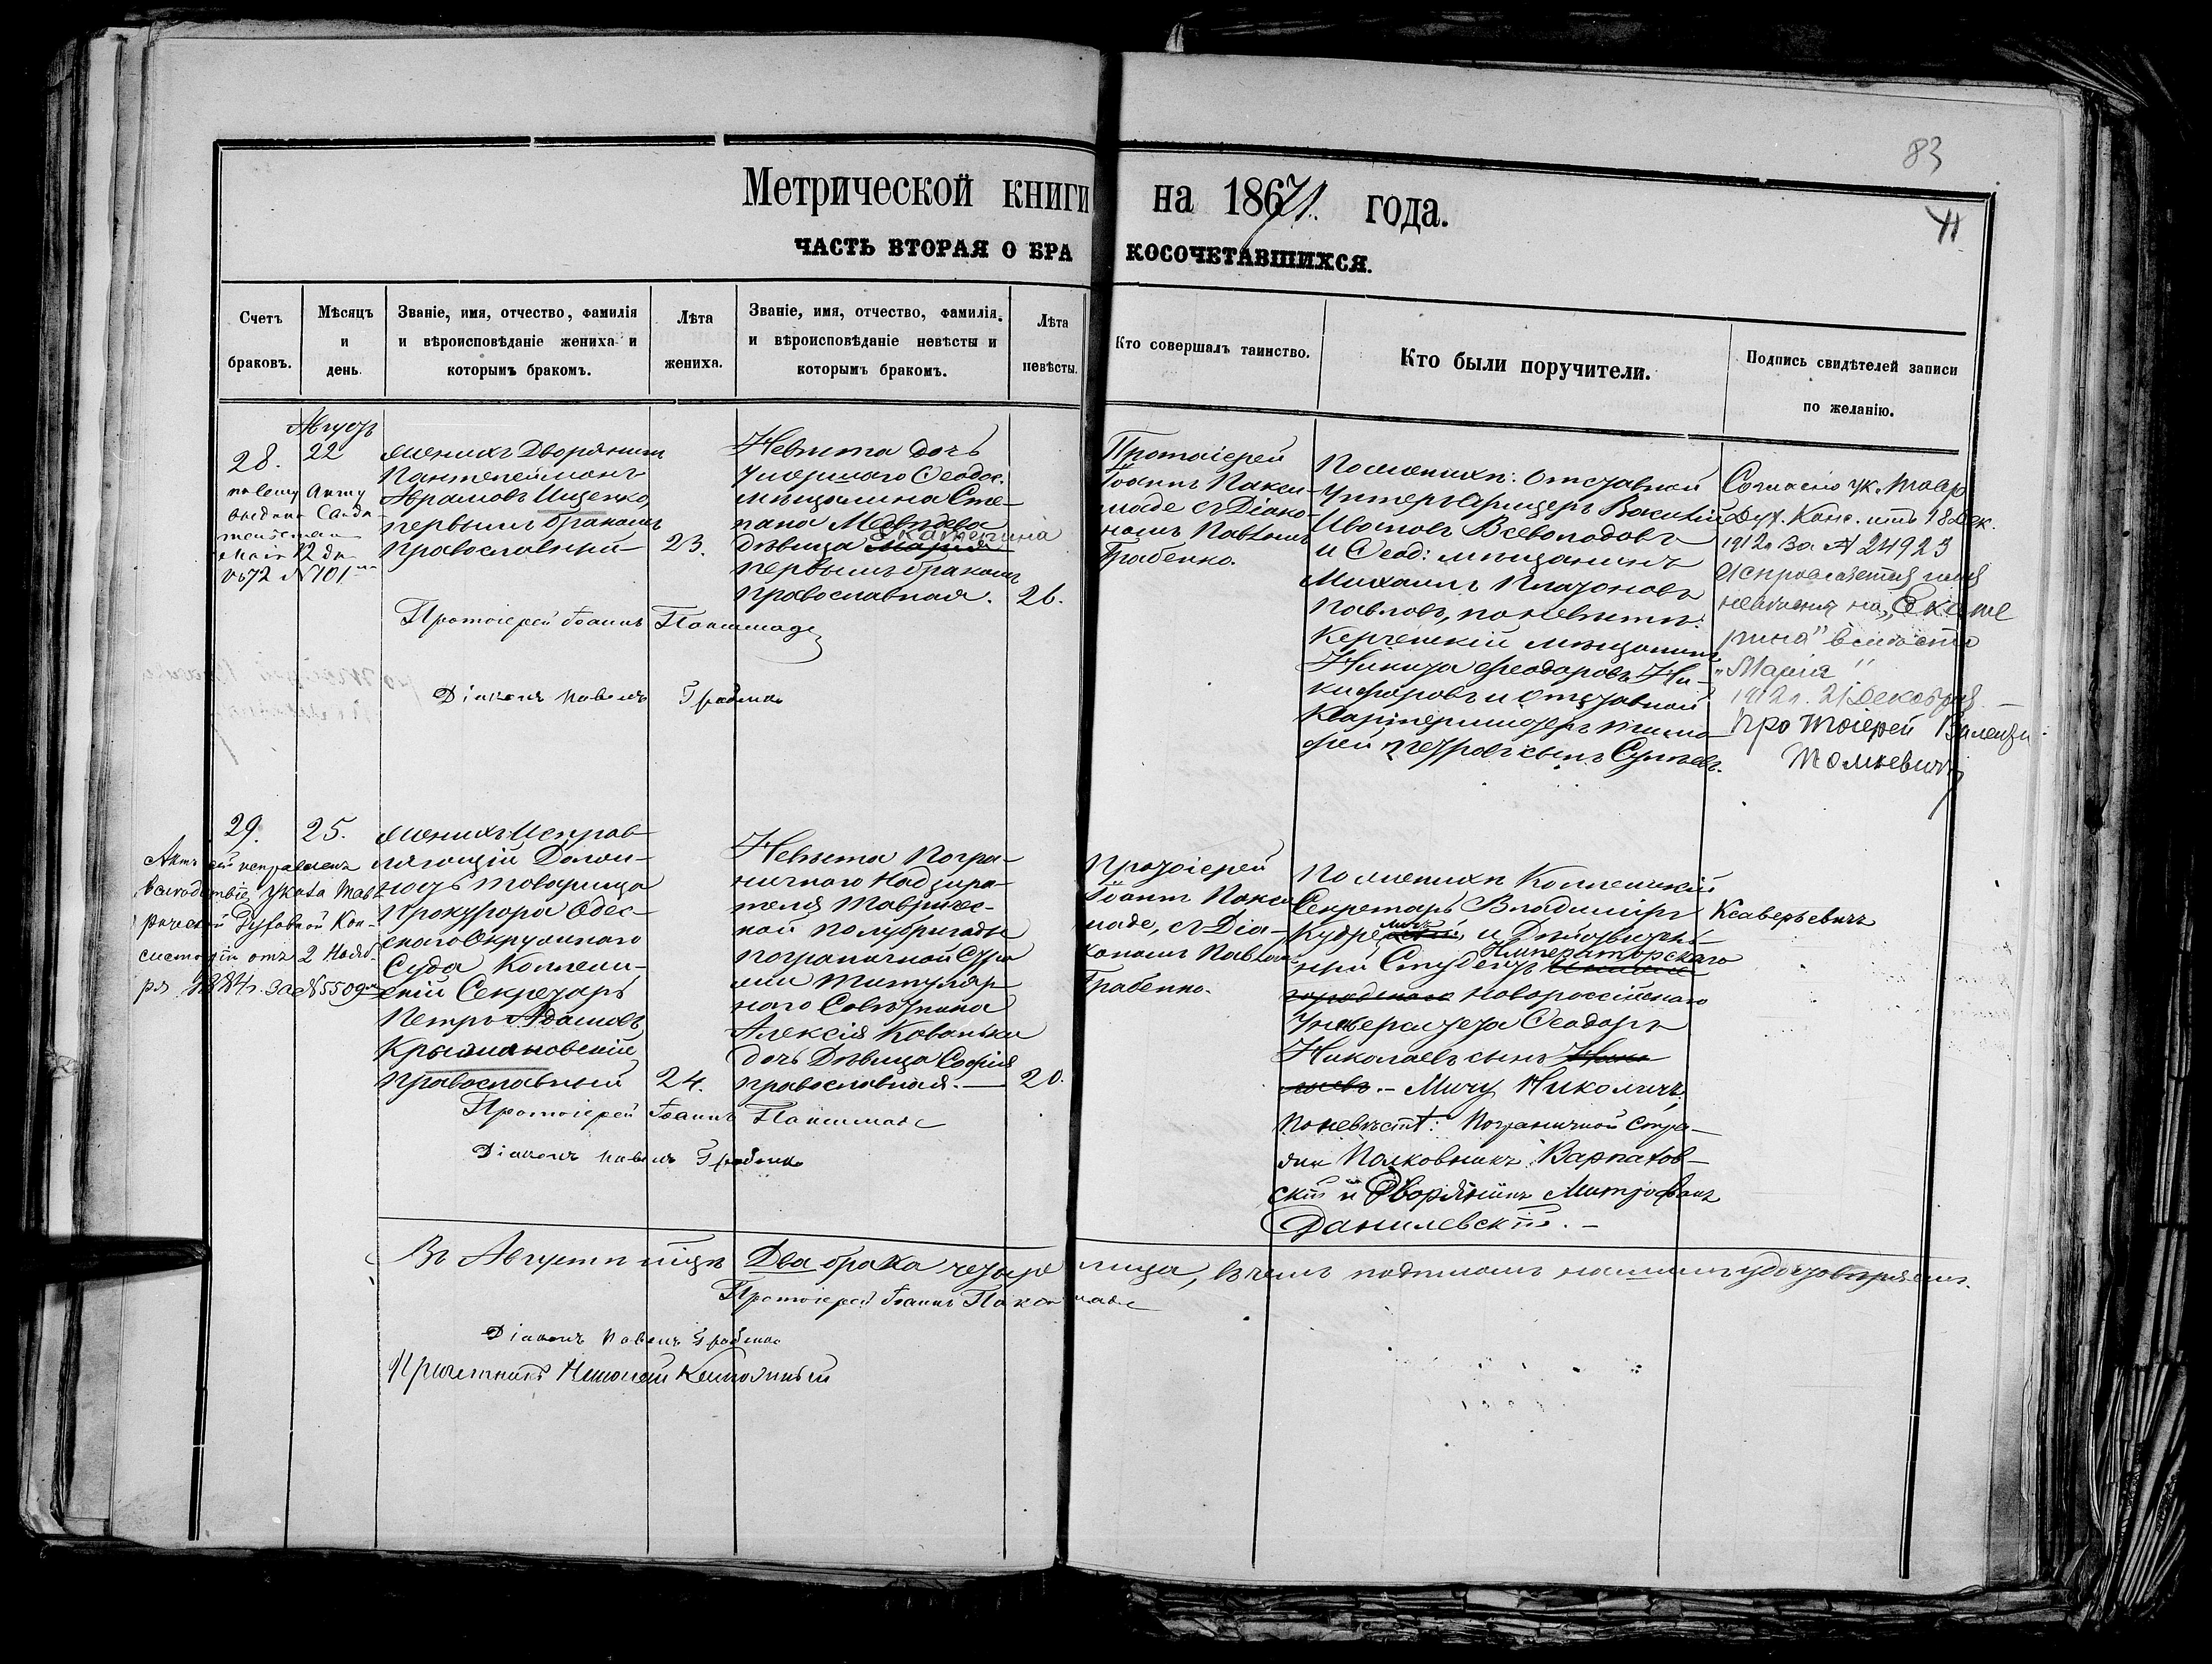 83
Метрической книги на 1871 года.
41
ЧАСТЬ ВТОРАЯ О БРАКОСОЧЕТАВШИХСЯ.
Счетъ браковъ.
Мѣсяцъ и день.
Званіе, имя, отчество, фамилія и вѣроисповѣданіе жениха и которымъ бракомъ.
Лѣта жениха.
Званіе, имя, отчество, фамилія и вѣроисповѣданіе невѣсты и которымъ бракомъ.
Лѣта невѣсты.
Кто совершалъ таинство.
Кто были поручители.
Подпись свидѣтелей записи по желанію.
Августъ
28.
22
по сему Акту
выдано
Мая 12 дня
1872 №101
Женихъ Дворянинъ
Пантелеймонъ
Абрамовъ Ищенко,
первымъ бракомъ
православный
23.
Невѣста дочь
умершаго Ѳеодос.
мѣщанина Сте-
пана Медвѣдева
Екатерина
дѣвица Марія
первымъ бракомъ
православная.
26.
Протоіерей
Іоаннъ Пакси-
маде съ Діако-
номъ Павломъ
Грабенко.
По женихѣ: Отставной
Унтеръ-Офицеръ Василій
Ивановъ Всеволодовъ
и Ѳеод: мѣщанинъ
Михаилъ Платоновъ
Павловъ, по невѣстѣ:
Керченскій мѣщанинъ
Никита Ѳеодоровъ Ни-
кифоровъ и отставной
Квартермистръ Тимо-
фей Петровъ сынъ
Согласно ук. Тавр.
Дух. Конс. отъ 18 Дек.
1912 г. за № 24923
исправляется имя
невѣсты на „Екате
рина" вмѣсто
„Марія"
1912 г. 21 Декабря
Протоіерей
Протоіерей Іоаннъ Паксимаде
Діаконъ Павелъ Грабенко
29.
25.
Актъ сей исправленъ
вслѣдствіе указа Тав-
рической Духовной Кон-
систоріи отъ 2 Нояб-
ря 1884 г. за №5509
Женихъ Исправ-
ляющій Долж-
ность товарища
Прокурора Одес-
скаго Окружнаго
Суда Коллеж-
скій Секретарь
Петръ Адамовъ
Крыжановскій
православный
24.
Невѣста Погра-
ничнаго Надзира-
теля Тавричес-
кой полубригады
пограничной Стра
жи Титуляр-
наго Совѣтника
Алексія Кованьки
дочь Дѣвица Софія
православная.
20.
Протоіерей
Іоаннъ Пакси
маде, съ Діа-
кономъ Павломъ
Грабенко.
По женихѣ Коллежскій
Секретарь Владиміръ
и Дѣйствитель-
ный Студентъ Императорскаго
Новороссійскаго
Университета Ѳеодоръ
Николаевъ сынъ
Мичу Николичъ.
По невѣстѣ: Пограничной Стра-
жи Полковникъ Варпахов-
скій и Дворянинъ Митрофанъ
Данилевскій.
Ксаверьевичъ
Протоіерей Іоаннъ Паксимаде
Діаконъ Павелъ Грабенко
Въ Августѣ м-цѣ Два брака четыре лица, въ чемъ подписомъ нашимъ удостовѣряемъ.
Протоіерей Іоаннъ Паксимаде
Діаконъ Павелъ Грабенко
Причетникъ Николай